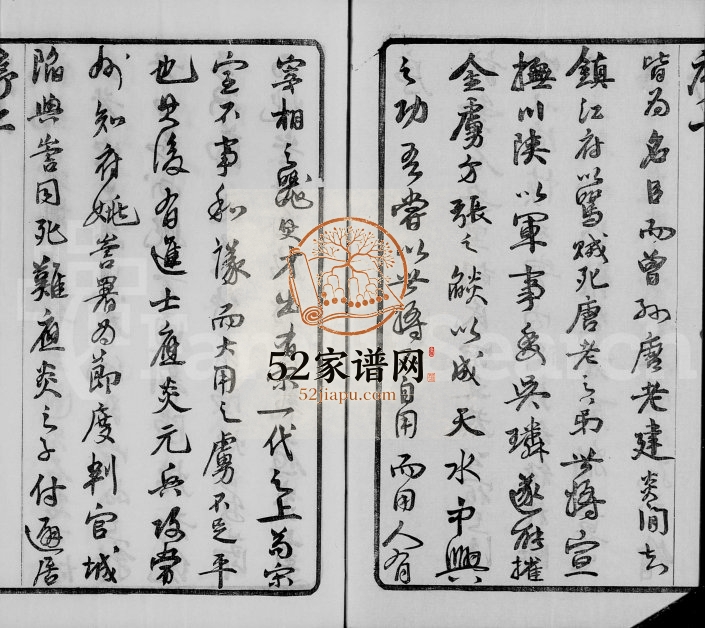 序一
皆为名臣而曾孙唐老建炎间知
鎮江府以罵贼死唐老之弟世將宣
撫川陕以軍事委吴璘遂能摧
金虜方張之燄以成天水中興
之功吾嘗以世將自用而用人有
宰相之才一代之上
宝不事和議而大用之虜不足平
也其後有進士應炎元兵攻常
州知府姚訔署为節度判官城
陷與訔同死難應炎之子付避居
序二
52家谱网
52jiapu.com
Search